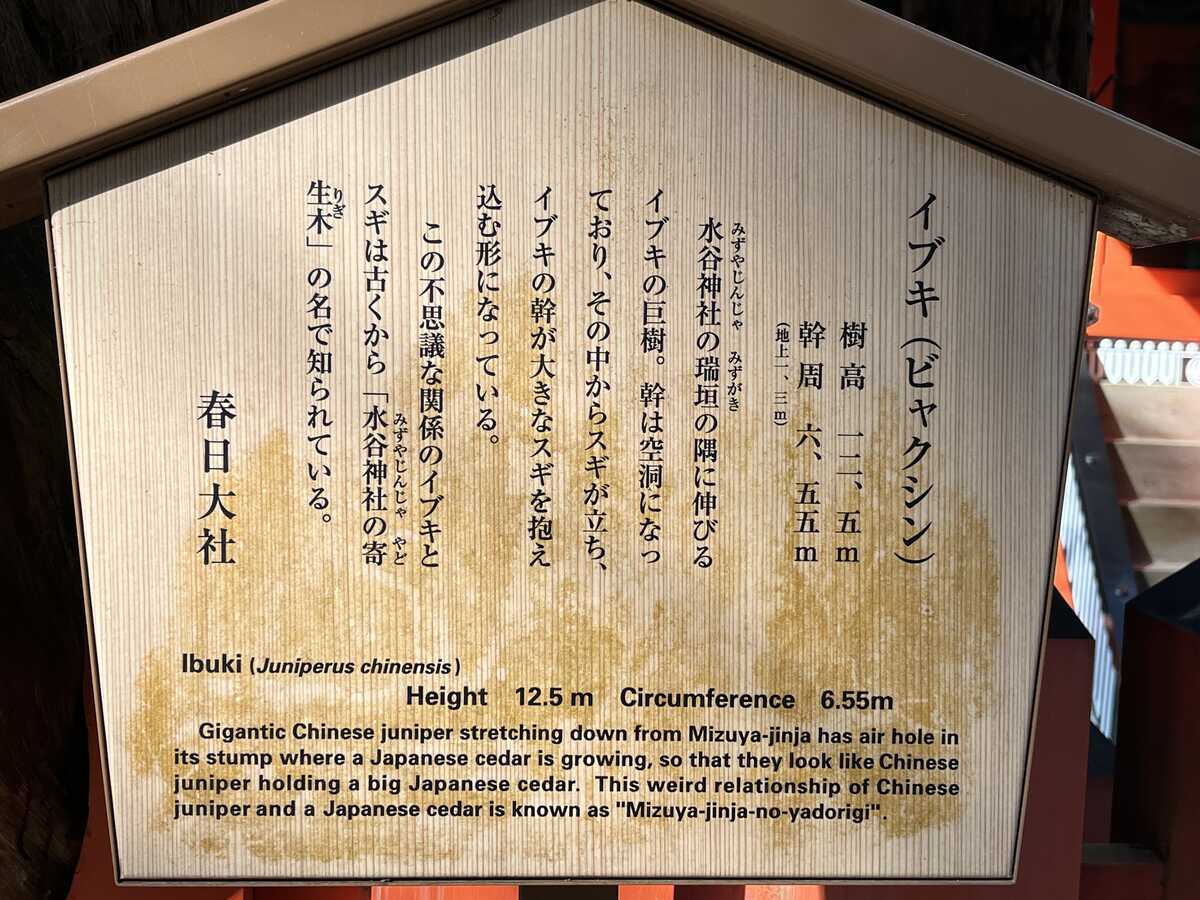 イブキ（ビャクシン）
樹高　一二、五ｍ
幹周　六、五五ｍ
（地上一、三ｍ）
水谷神社の瑞垣の隅に伸びる
みずやじんじゃ　みずがき
イブキの巨樹。幹は空洞になっ
ており、その中からスギが立ち、
イブキの幹が大きなスギを抱え
込む形になっている。
この不思議な関係のイブキと
スギは古くから「水谷神社の寄
みずやじんじゃ　やど
生木」の名で知られている。
りぎ
春日大社
Ibuki (Juniperus chinensis)
Height 12.5 m Circumference 6.55m
Gigantic Chinese juniper stretching down from Mizuya-jinja has air hole in
its stump where a Japanese cedar is growing, so that they look like Chinese
juniper holding a big Japanese cedar. This weird relationship of Chinese
juniper and a Japanese cedar is known as "Mizuya-jinja-no-yadorigi".